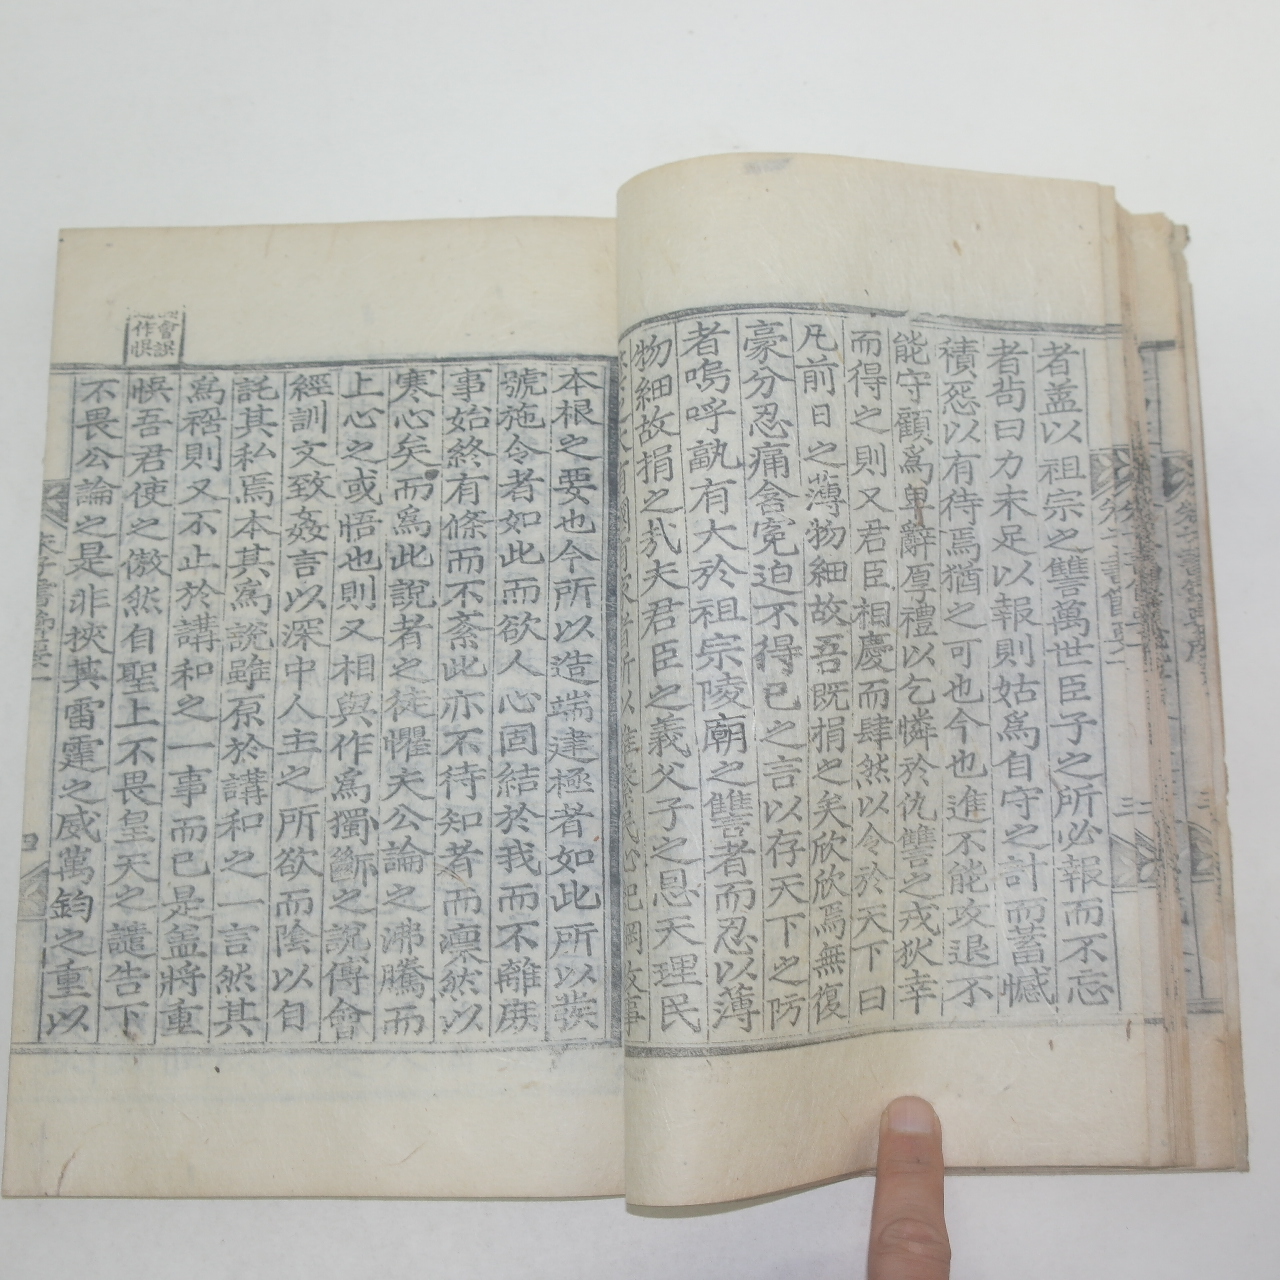 者蓋以祖宗之讐萬世臣子之所必報而不忘
者苟曰力未足以報則姑爲自守之計而蓄憾
積怨以有待焉猶之可也今也進不能攻退不
能守顧爲卑辭厚禮以乞憐於仇讐之戎狄幸
而得之則又君臣相慶而肆然以令於天下曰
凡前日之薄物細故吾既捐之矣欣欣焉無復
豪分忍痛含冤迫不得已之言以存天下之防
者嗚呼孰有大於祖宗陵廟之讐者而忍以薄
物細故捐之哉夫君臣之義父子之恩天理民
本根之要也今所以造端建極者如此所以發
號施令者如此而欲人心固結於我而不離庶
事始終有條而不紊此亦不待知者而凜然以
寒心矣而爲此說者之徒懼夫公論之沸騰而
上心之或悟也則又相與作爲獨斷之說傅會
經訓文致姦言以深中人主之所欲而陰以自
託其私焉本其爲說雖原於講和之一言然其
爲禍則又不止於講和之一事而已是盖將重
悞吾君使之傲然自聖上不畏皇天之譴告下
不畏公論之是非挾其雷霆之威萬鈞之重以
會誤
作悞
四